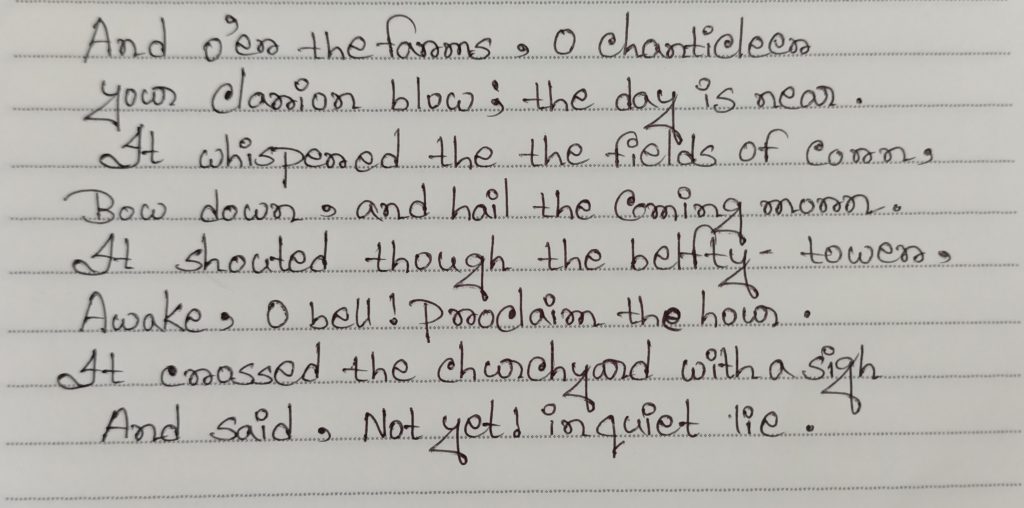 And o'er the farms, O chanticleer
your clarion blow; the day is near.
It whispered the the fields of corn,
Bow down, and hail the coming morn.
It shouted though the belfty-tower,
Awake, O bell! Proclaim the hour.
It crassed the churchyard with a sigh
And said, Not yet! in quiet lie.